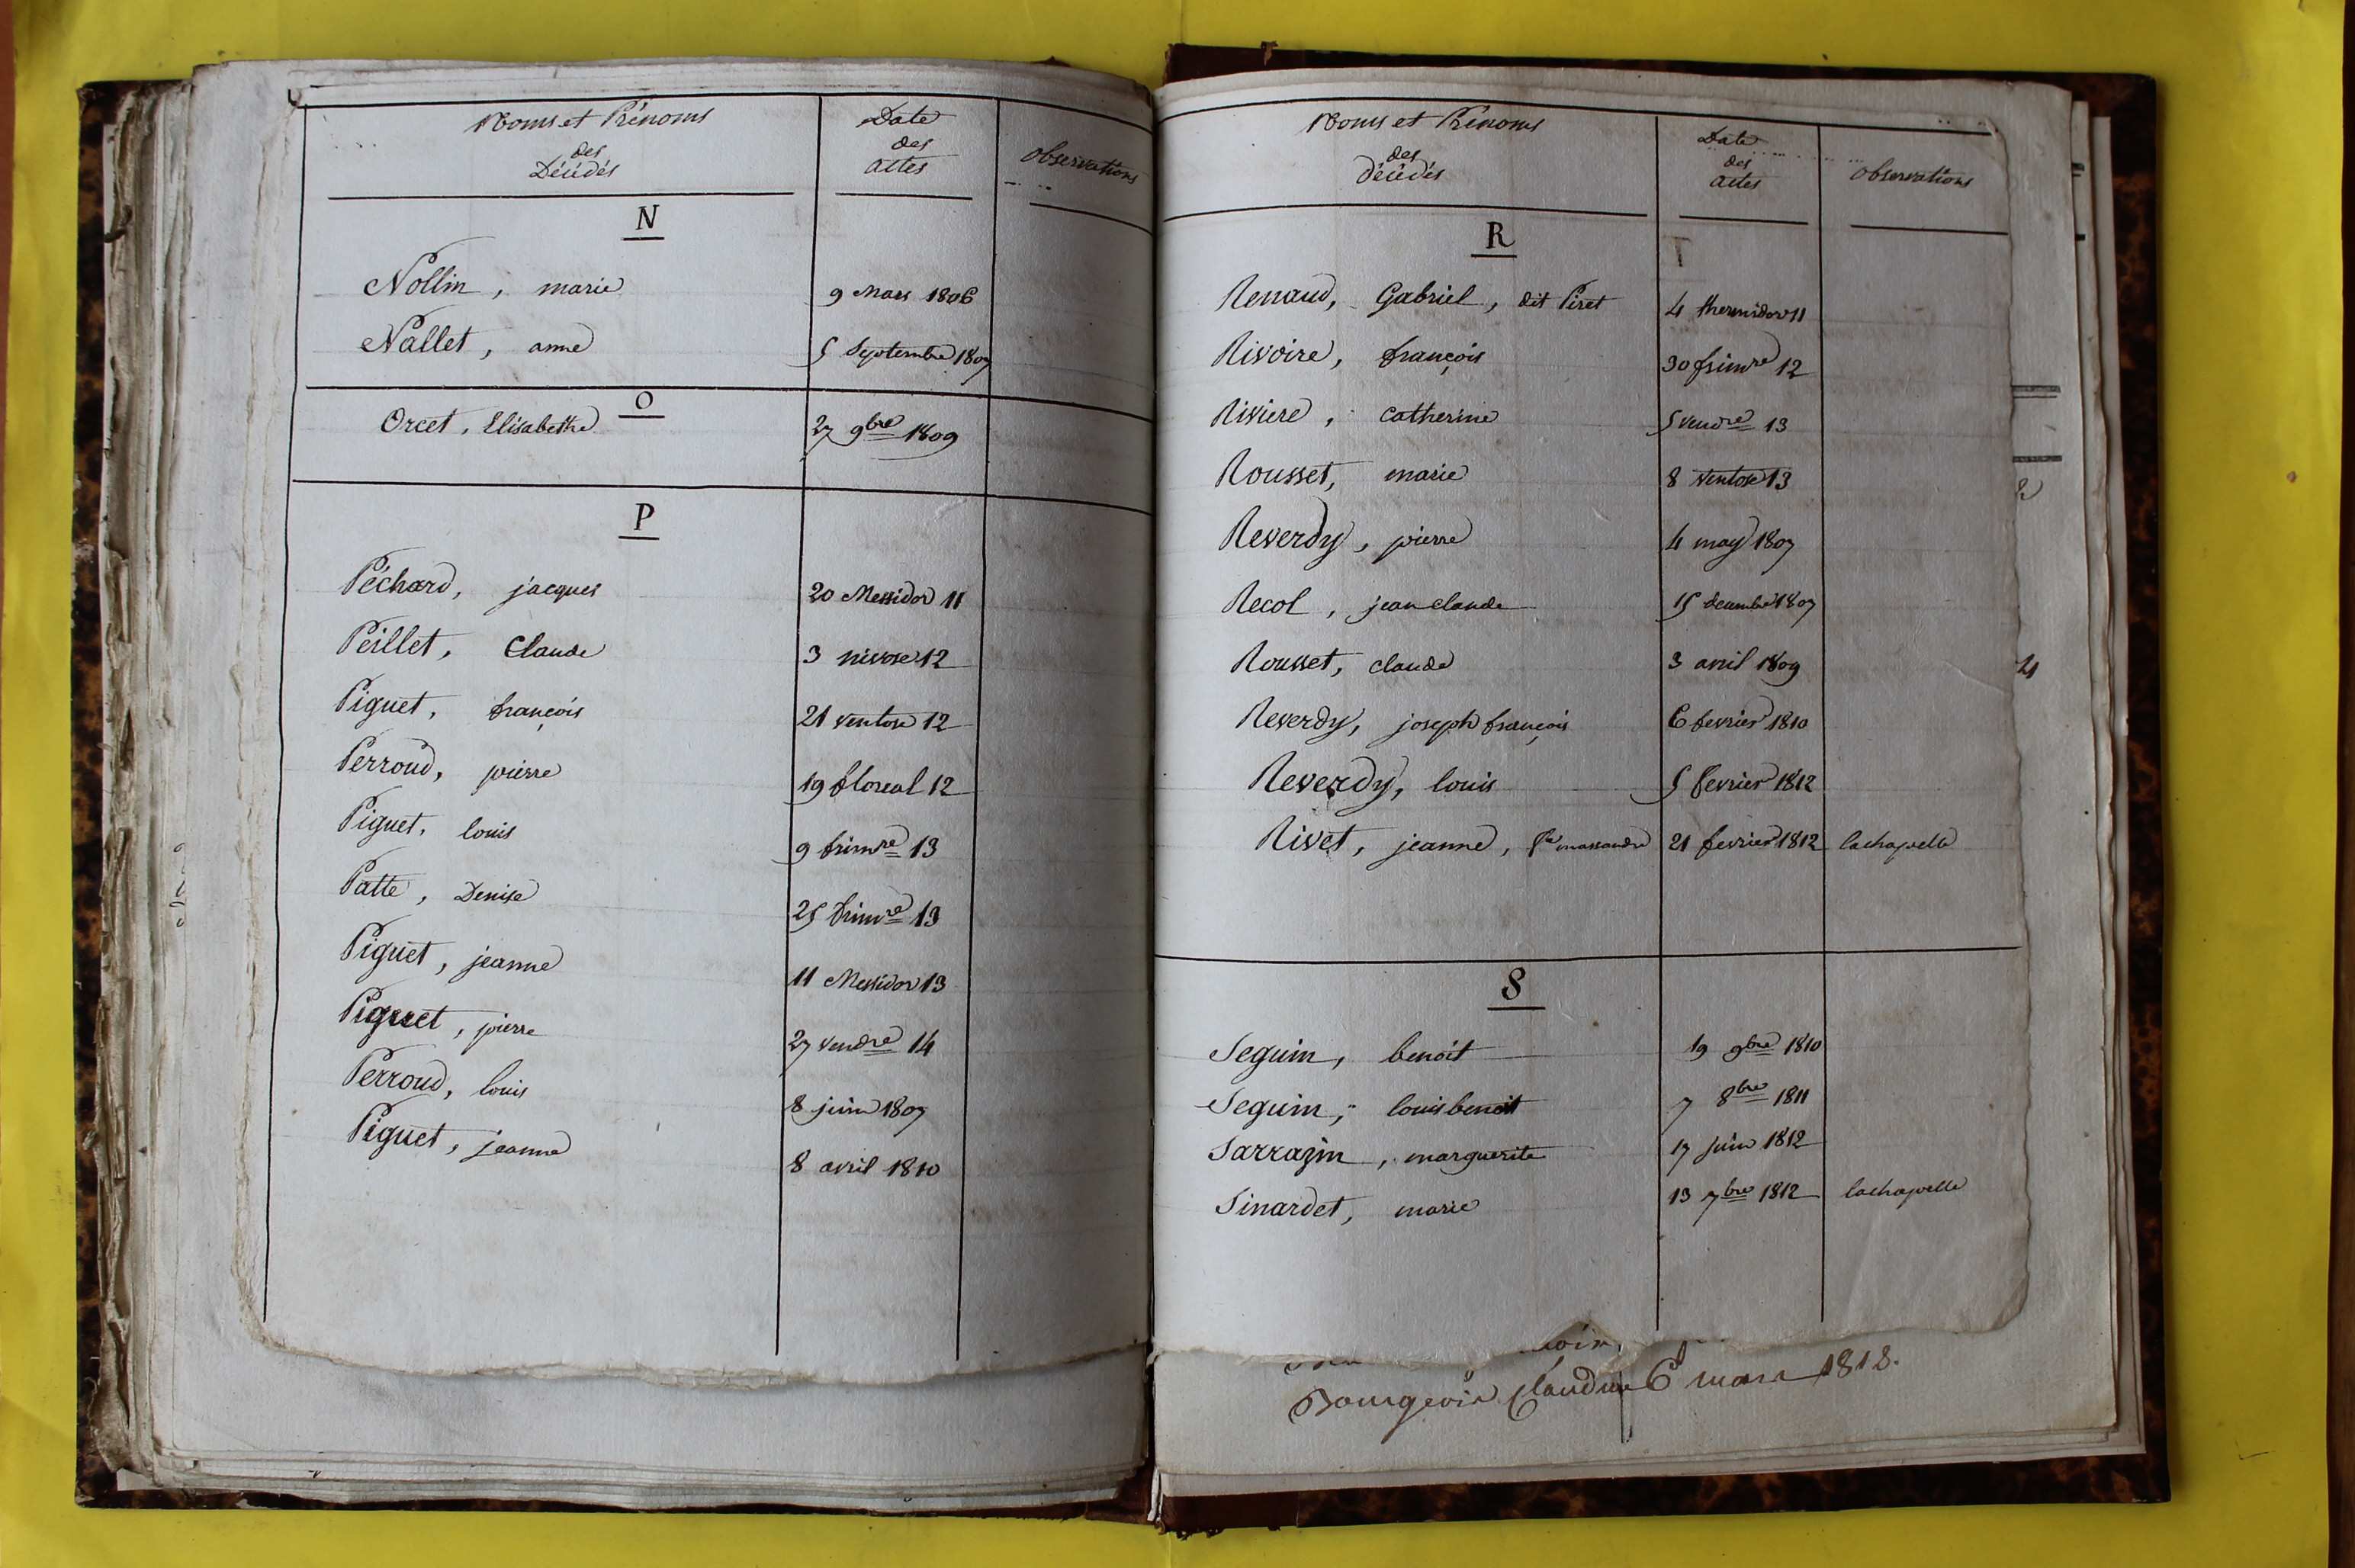 Noms et Prénoms
des
Décédés
Date
des
actes
observations
N
Nollin, marie 9 Mars 1806
Nallet, anne 5 Septembre 1807
O
Orcet, Elisabethe 27 9bre 1809
P
Péchard, jacques 20 Messidor 11
Peillet, Claude 3 nivose 12
Piguet, françois 21 ventose 12
Perroud, pierre 19 floreal 12
Piguet, louis 9 frimre 13
Patte, Denise 25 frimre 13
Piguet, jeanne 11 Messidor 13
Piguet, pierre 27 vendre 14
Perroud, louis 8 juin 1807
Piguet, jeanne 8 avril 1810
Noms et Prénoms
des
décédés
Date
des
actes
observations
R
Renaud, Gabriel, dit Piret 4 thermidor 11
Rivoire, françois 30 frimre 12
Riviere, catherine 5 vendre 13
Rousset, marie 8 ventose 13
Reverdy, pierre 4 may 1807
Recol, jean claude 15 decembre 1807
Rousset, claude 3 avril 1809
Reverdy, joseph françois 6 fevrier 1810
Reverdy, louis 5 fevrier 1812
Rivet, jeanne, fe massandre 21 fevrier 1812 lachapelle
S
Seguin, benoit 19 9bre 1810
Seguin, louis benoit 7 8bre 1811
Sarrazin, marguerite 17 juin 1812
Sinardet, marie 13 7bre 1812 lachapelle
Bourgeois Claudine 6 mars 1812.